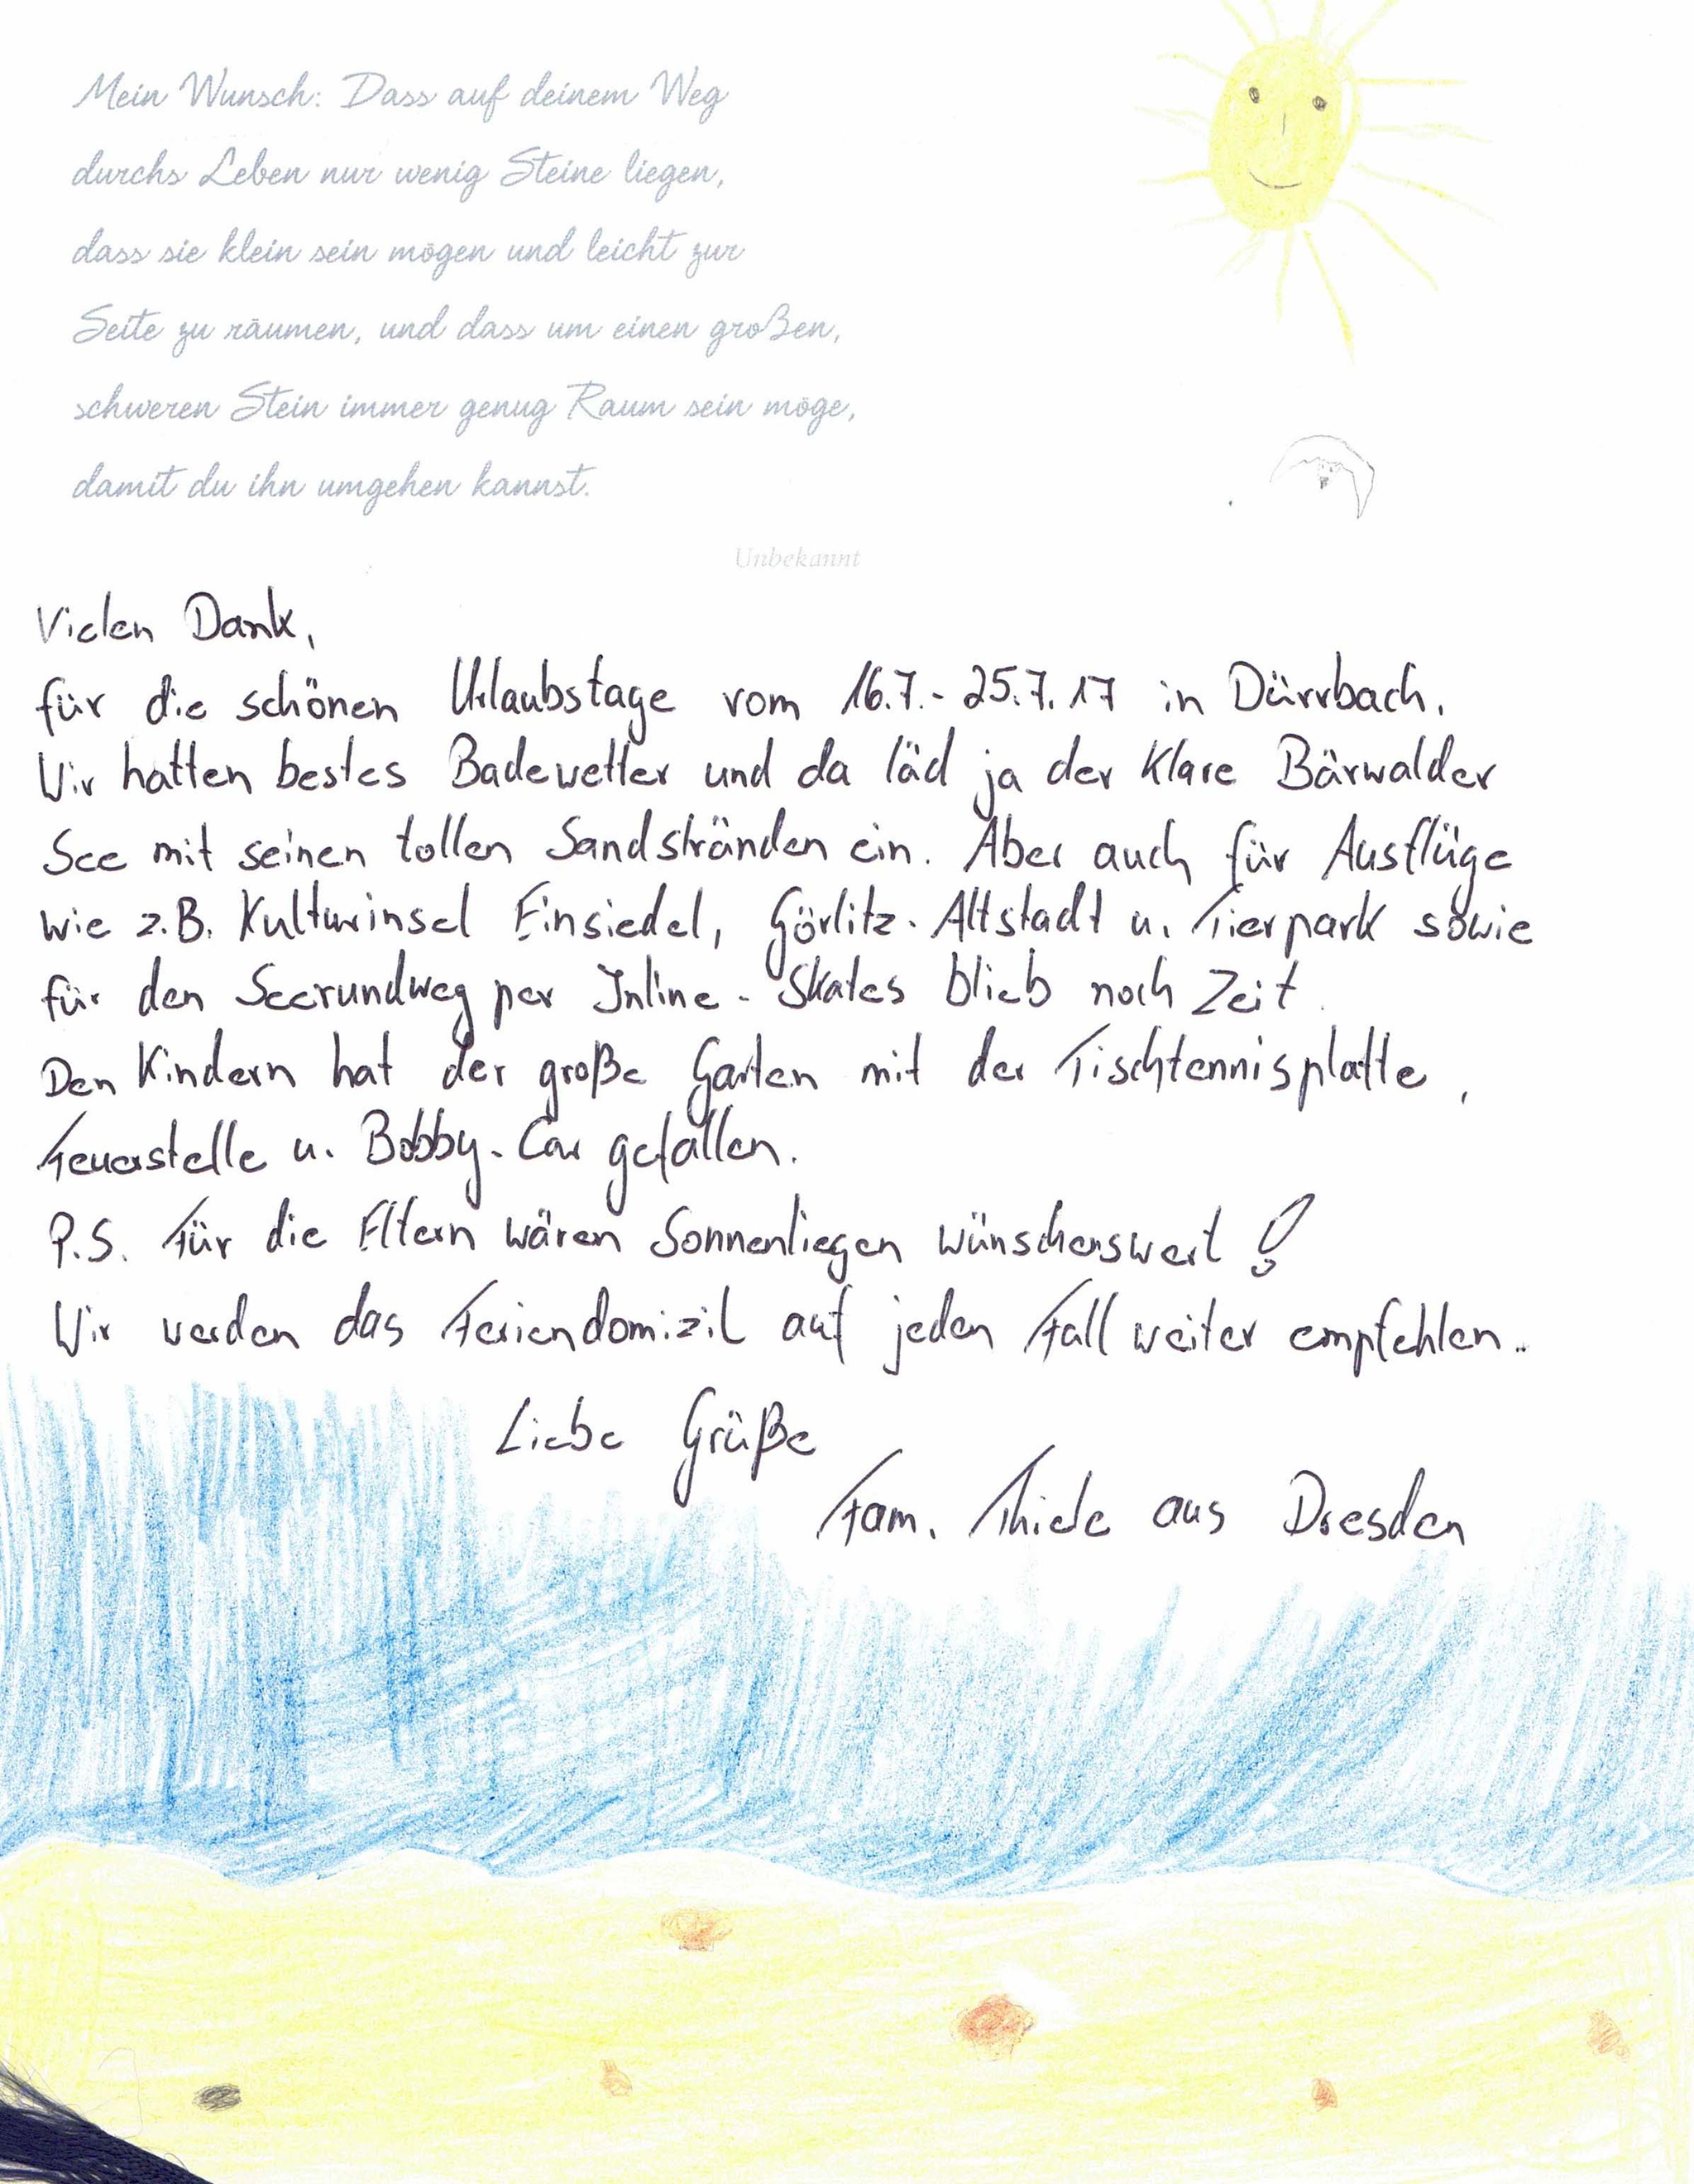 Mein Wunsch: Dass auf deinem Weg
durchs Leben nur wenig Steine liegen,
dass sie klein sein mögen und leicht zur
Seite zu räumen, und dass um einen großen,
schweren Stein immer genug Raum sein möge,
damit du ihn umgehen kannst.
Unbekannt
Vielen Dank,
für die schönen Urlaubstage vom 16.7.-25.7.17 in Dürrbach.
Wir hatten bestes Badewetter und da läd ja der Klare Bärwalder
See mit seinen tollen Sandstränden ein. Aber auch für Ausflüge
wie z.B. Kulturinsel Einsiedel, Görlitz-Altstadt u. Tierpark sowie
für den Seerundweg per Inline-Skates blieb noch Zeit.
Den Kindern hat der große Garten mit der Tischtennisplatte,
Feuerstelle u. Bobby-Car gefallen.
P.S. Für die Eltern wären Sonnenliegen wünschenswert!
Wir werden das Feriendomizil auf jeden Fall weiter empfehlen..
Liebe Grüße
Fam. Thiele aus Dresden